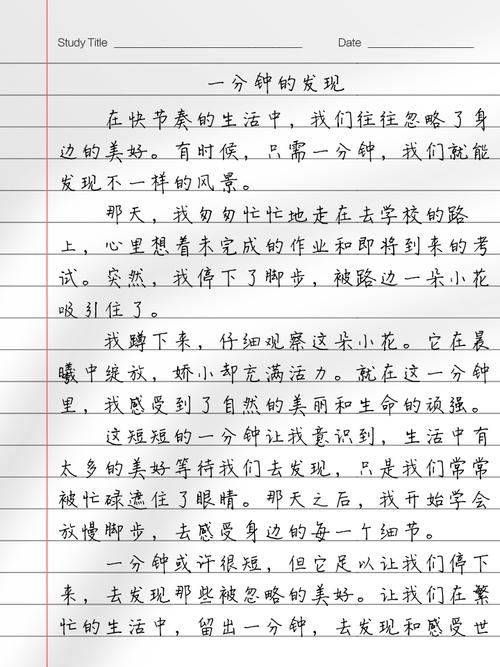 Study Title
Date
一分钟的发现
在快节奏的生活中，我们往往忽略了身
边的美好。有时候，只需一分钟，我们就能
发现不一样的风景。
那天，我匆匆忙忙地走在去学校的路
上，心里想着未完成的作业和即将到来的考
试。突然，我停下了脚步，被路边一朵小花
吸引住了。
我蹲下来，仔细观察这朵小花。它在晨
曦中绽放，娇小却充满活力。就在这一分钟
里，我感受到了自然的美丽和生命的顽强。
这短短的一分钟让我意识到，生活中有
太多的美好等待我们去发现，只是我们常常
被忙碌遮住了眼睛。那天之后，我开始学会
放慢脚步，去感受身边的每一个细节。
一分钟或许很短，但它足以让我们停下
来，去发现那些被忽略的美好。让我们在繁
忙的生活中，留出一分钟，去发现和感受世